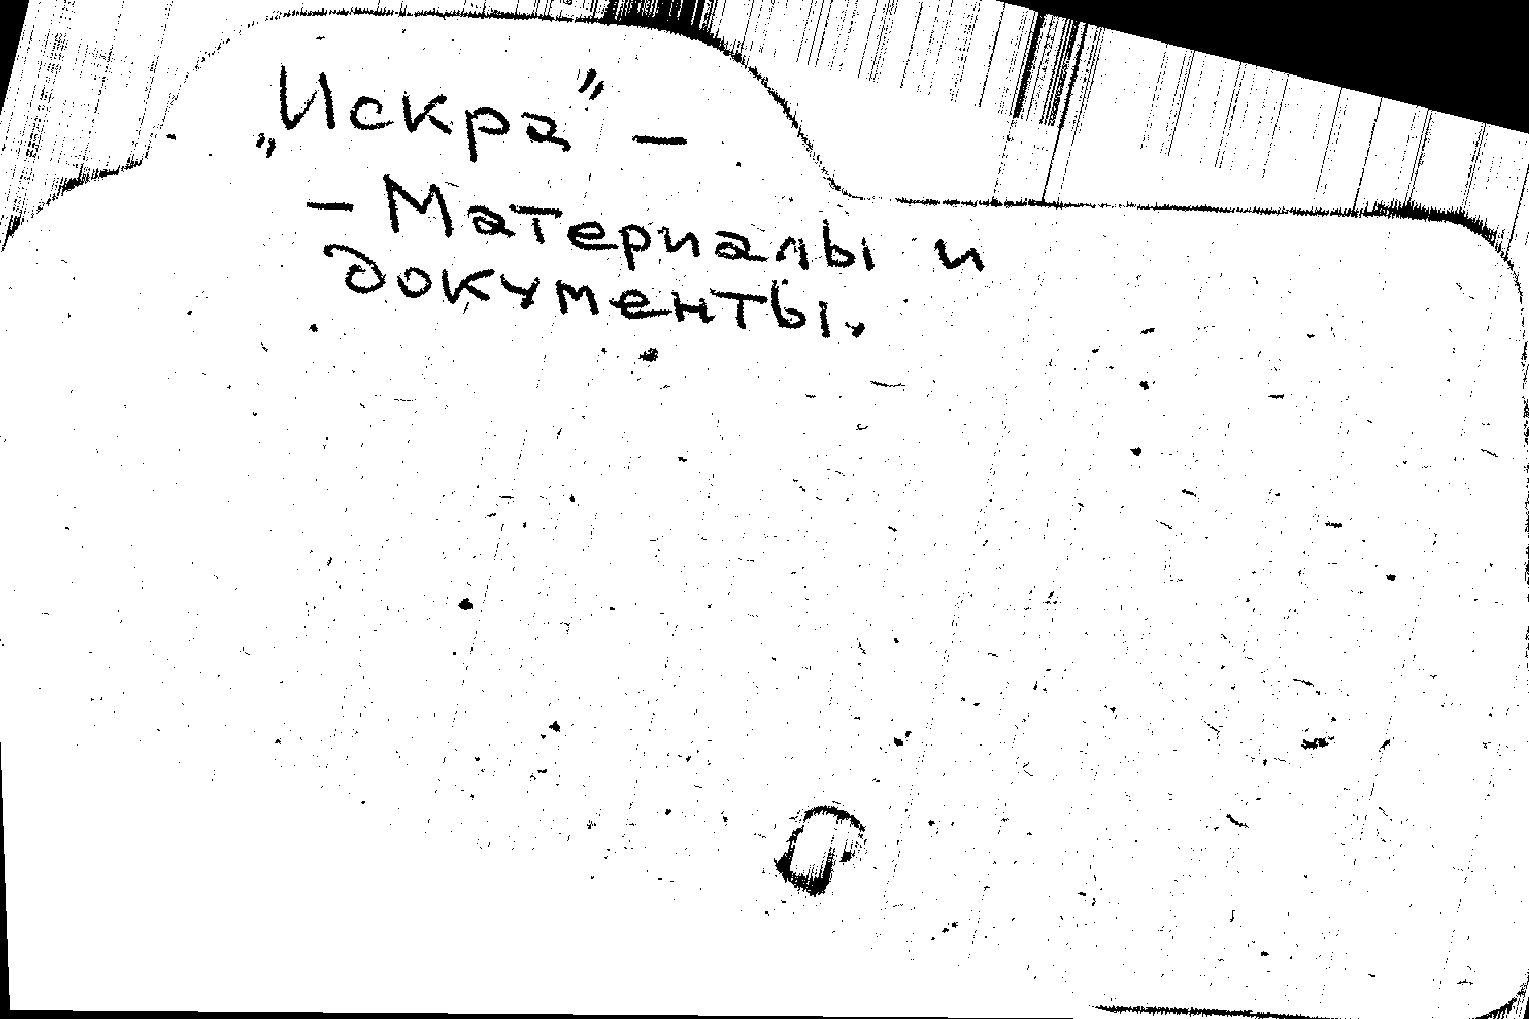 „Искра” –
– Материалы и
документы.